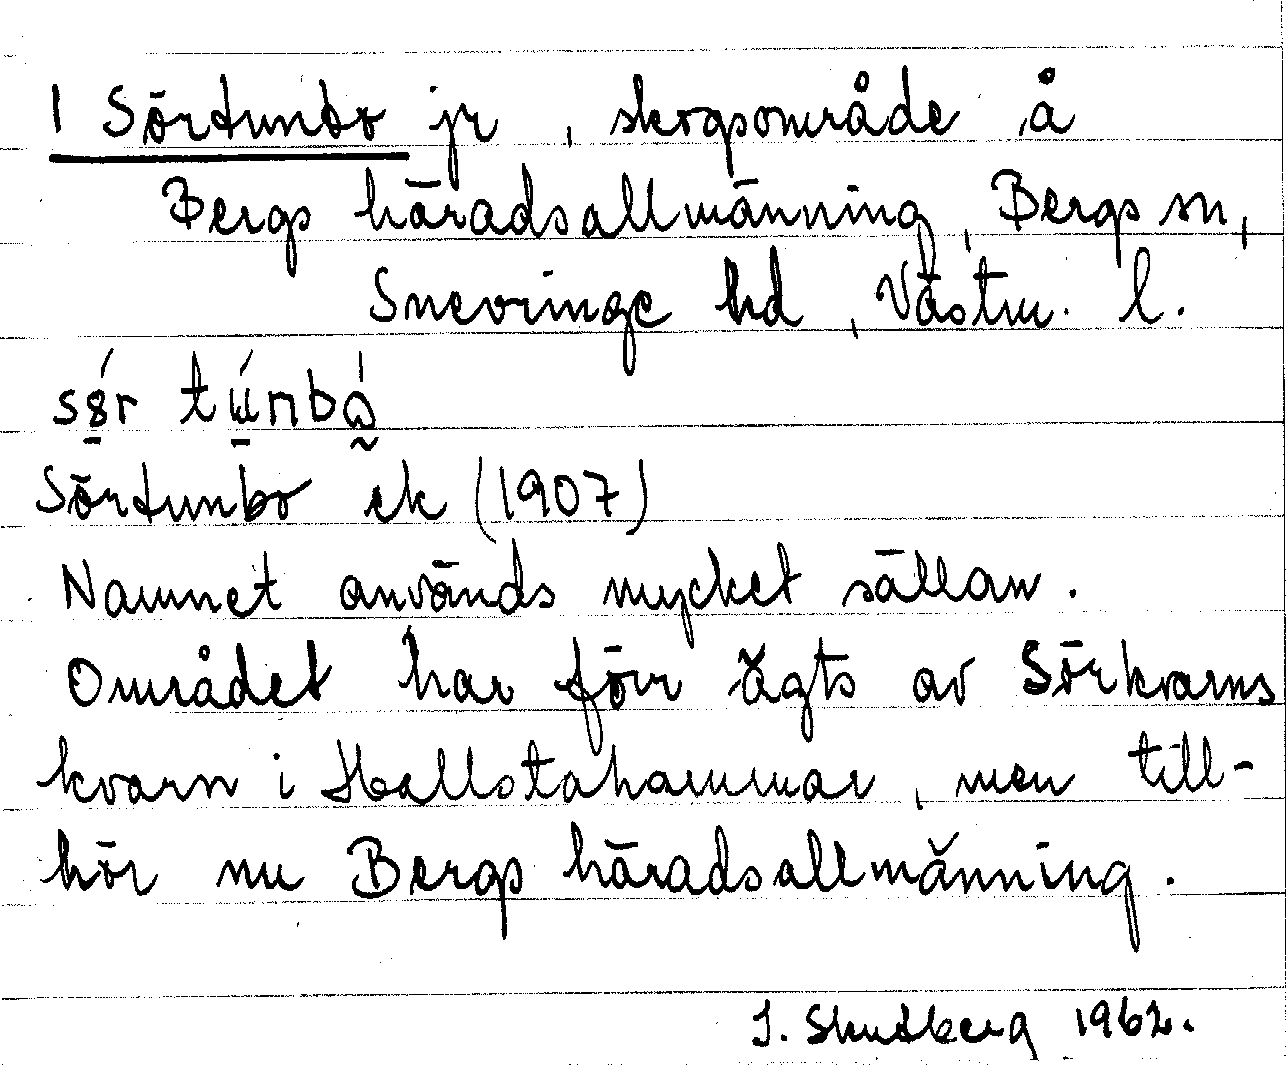 1 Sörtunbo jr, skogsområde å
Bergs häradsallmänning, Bergs sn,
Snevringe hd, Västm. l.
Sörtunbo ek (1907)
Namnet används mycket sällan.
Området har förr ägts av Sörkvarns
kvarn i Hallstahammar, men till-
hör nu Bergs häradsallmänning.
J. 1962.